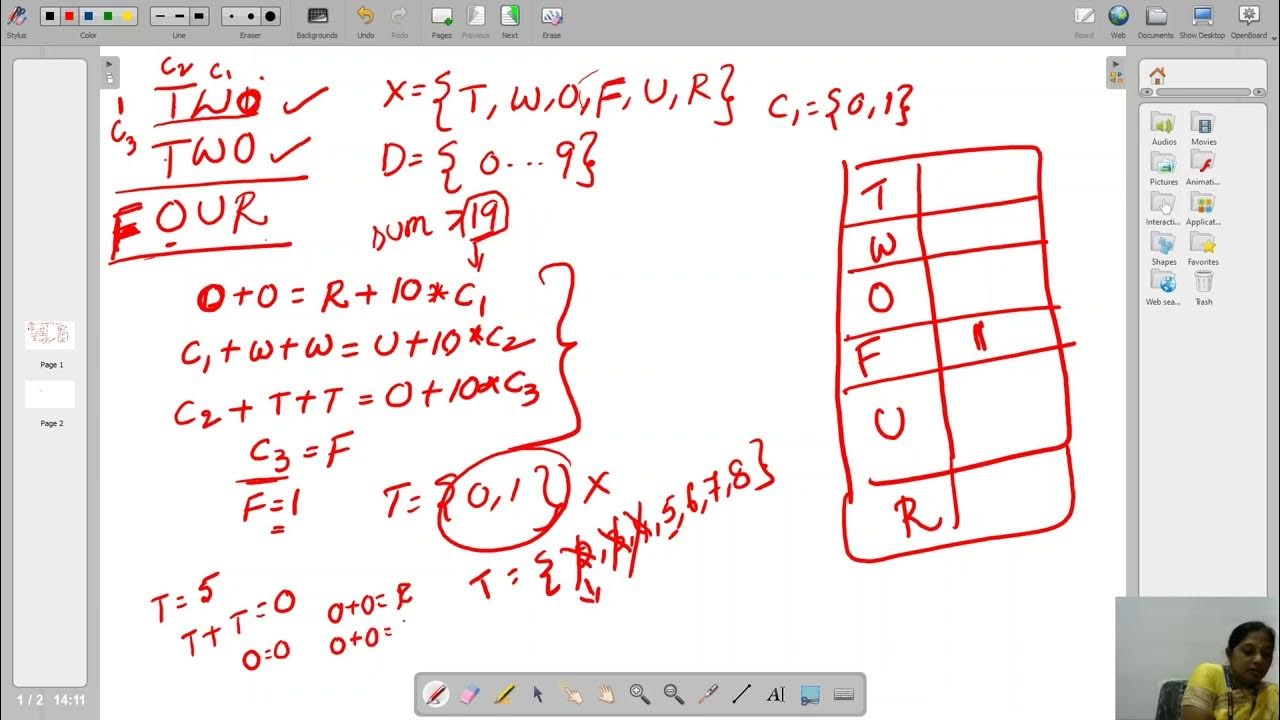 Stylus
Color
Line
Eraser
Backgrounds
Undo
Redo
Pages
Previous
Next
Erase
Board
Web
Documents
Show Desktop
OpenBoard
C2 C1
1 TWO ✓
C3 TWO ✓
FOUR
X = {T, W, O, F, U, R}
C1 = {0, 1}
D = { 0 ... 9}
sum > 19
0 + 0 = R + 10 * C1
C1 + W + W = U + 10 * C2
C2 + T + T = O + 10 * C3
C3 = F
F = 1
T = {0, 1} X
T = { , , , 5, 6, 7, 8}
T = 5
T + T = 0
0 = 0
0 + 0 = R
0 + 0 =
T
W
O
F 1
U
R
Page 1
Page 2
Audios
Movies
Pictures
Animati...
Interacti...
Applicat...
Shapes
Favorites
Web sea...
Trash
1 / 2 14:11